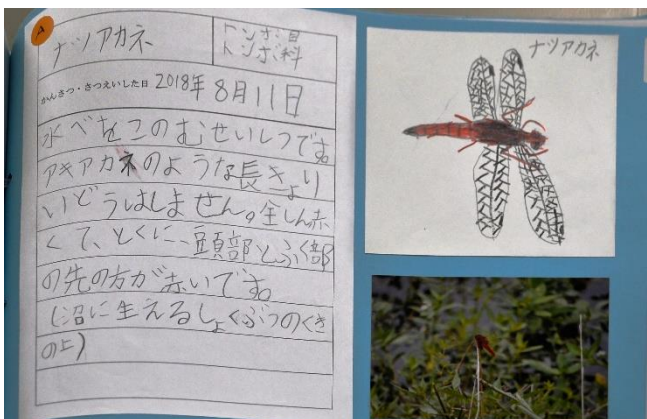 A
ナツアカネ
トンボ目
トンボ科
かんさつ・さつえいした日 2018年8月11日
水べをこのむせいしつです。
アキアカネのような長きょり
いどうはしません。全しん赤
くて、とくに、頭部とふく部
の先の方が赤いです。
(沼に生えるしょくぶつのくき
の上)
ナツアカネ